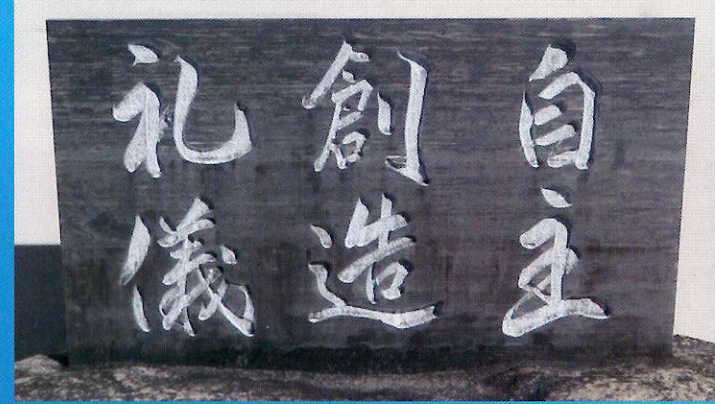 自主
創造
礼儀